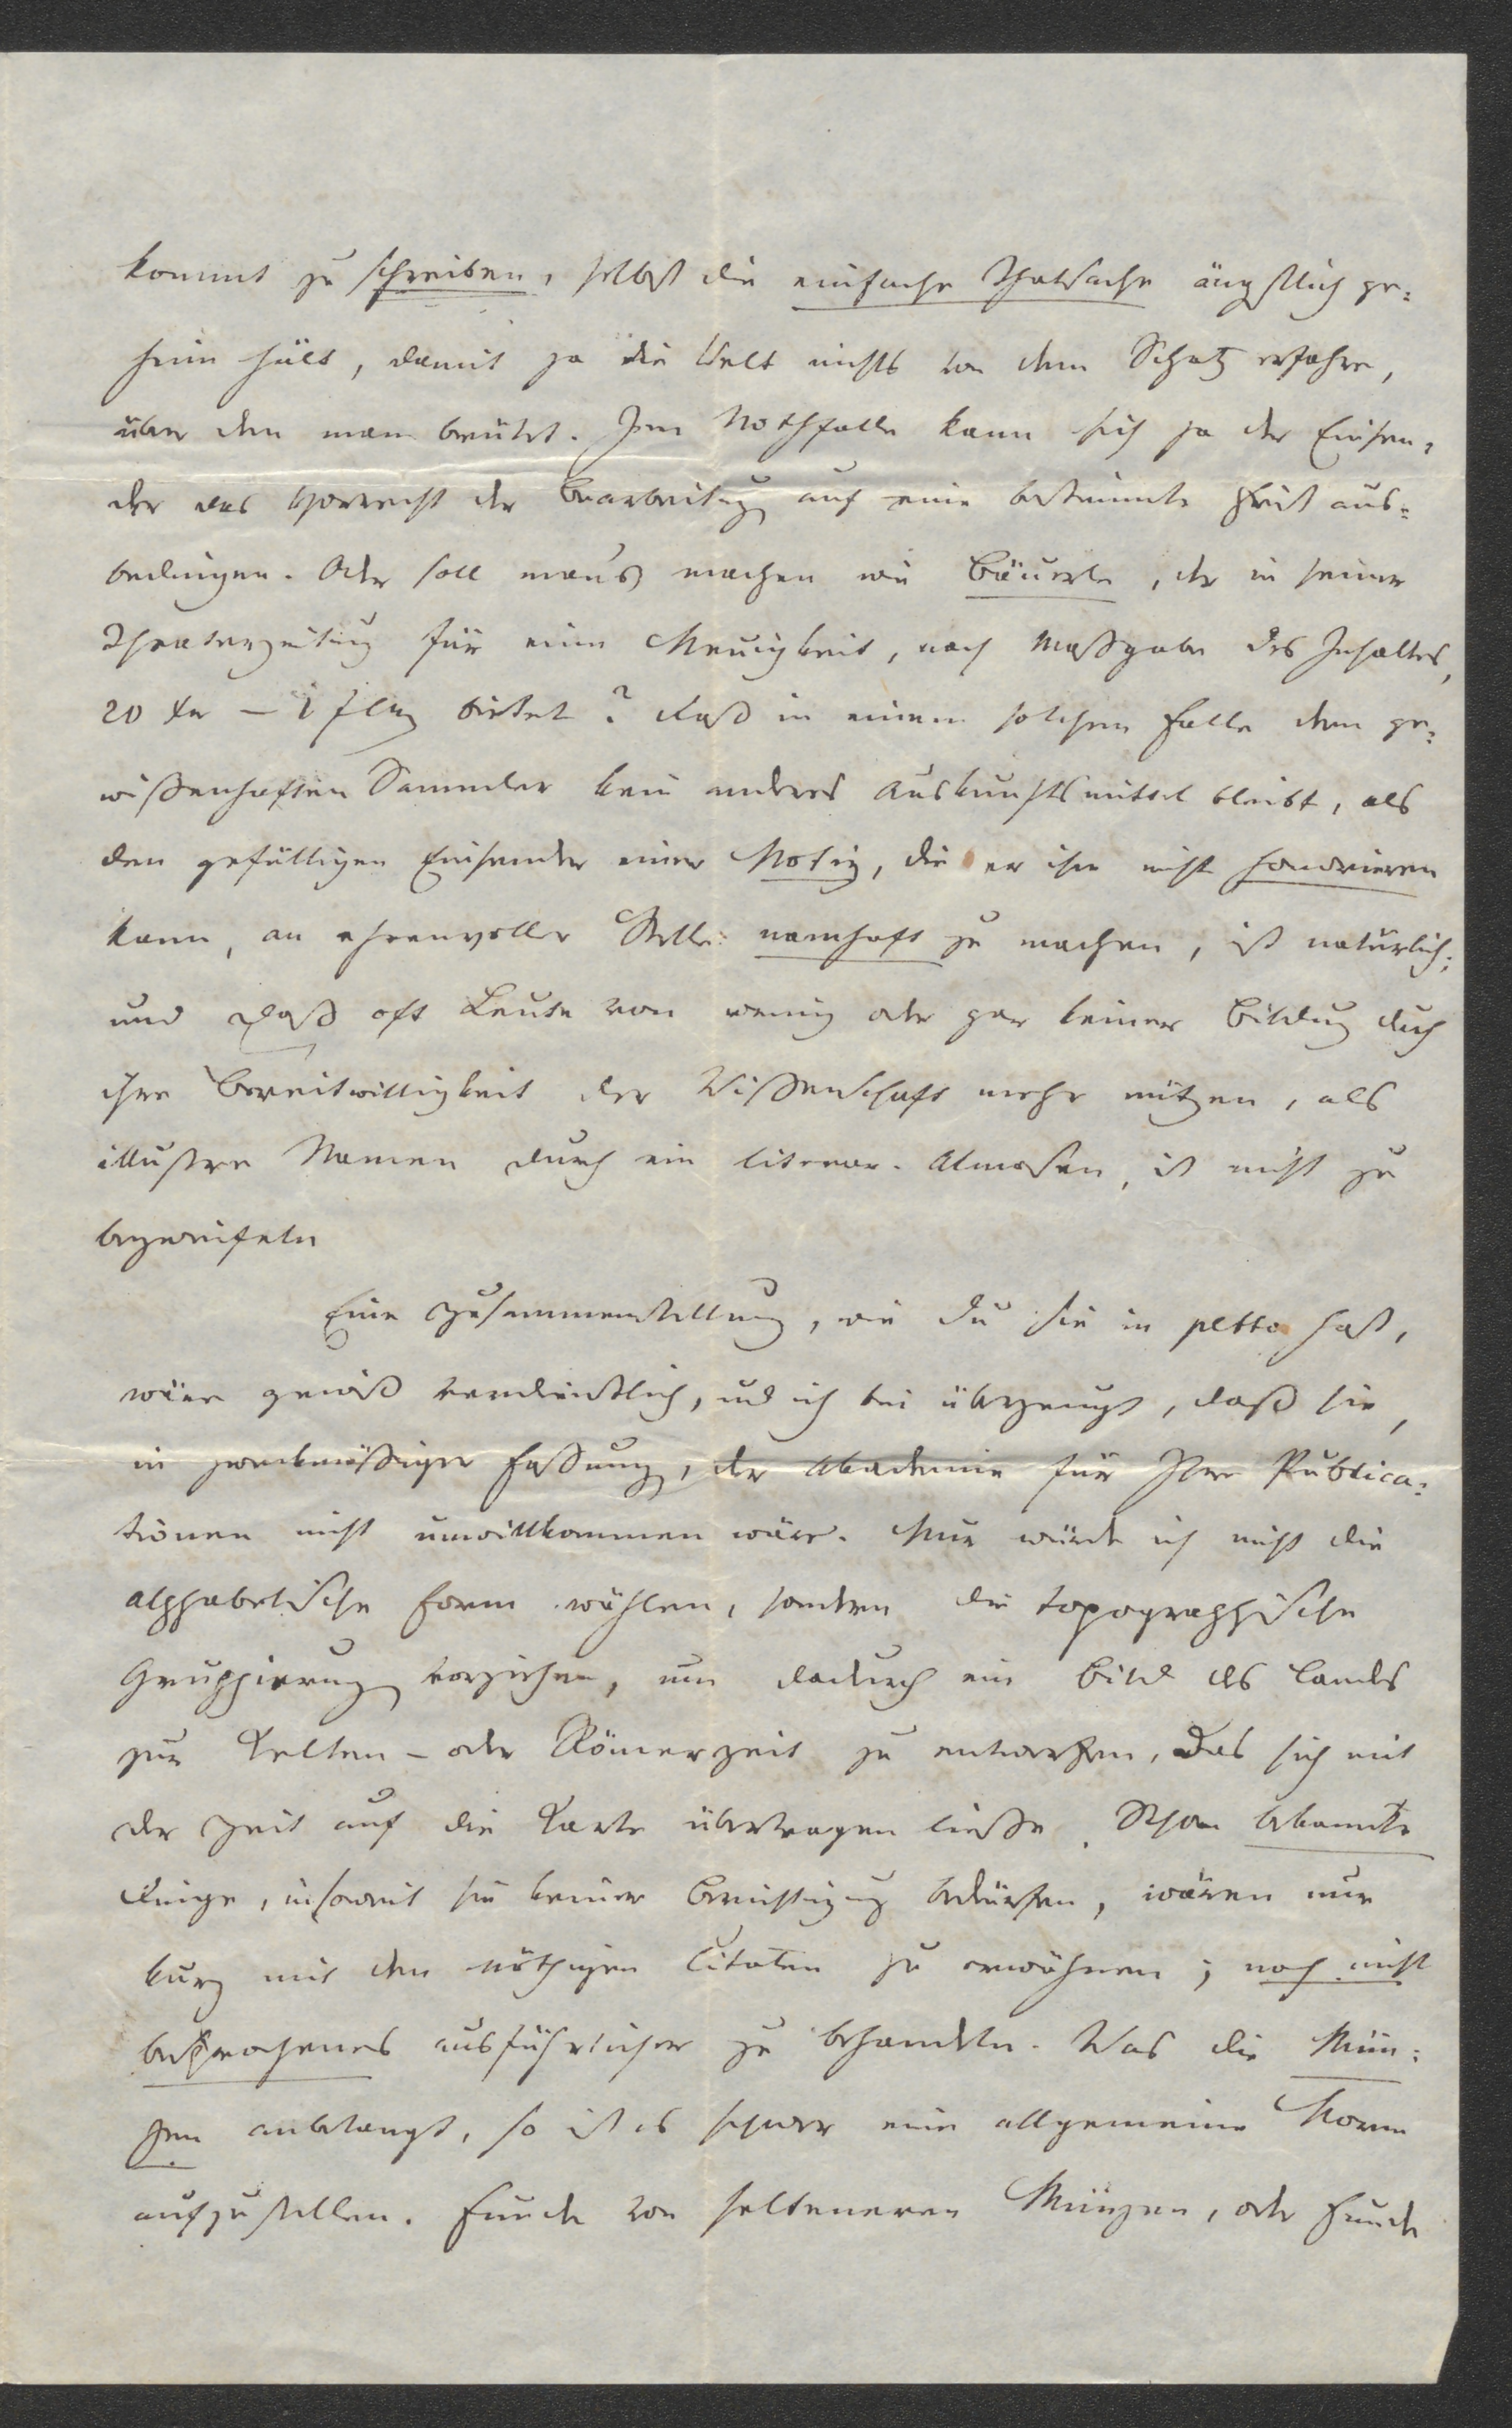 kommt zu schreiben, selbst die einfache Thatsache ängstlich ge=
heim hält, damit ja die Welt nichts von dem Schatz erfahre,
über den man brütet. Im Nothfalle kann sich ja der Einsen=
der das Vorrecht der Bearbeitung auf eine bestimmte Frist aus=
bedingen. Oder soll man's machen wie Bäuerle, der in seiner
Theaterzeitung für eine Neuigkeit, nach Maßgabe des Inhaltes,
20 Xr – 1 f CMz bietet? Daß in einem solchen Falle dem ge=
wissenhaften Sammler kein anderes Auskunftsmittel bleibt, als
den gefälligen Einsender einer Notiz, die er ihm nicht honoriren
kann, an ehrenvoller Stelle namhaft zu machen, ist natürlich;
und daß oft Leute von wenig oder gar keiner Bildung durch
ihre Bereitwilligkeit der Wissenschaft mehr nützen, als
illustre Namen durch ein literar. Almosen, ist nicht zu
bezweifeln
Eine Zusammenstellung, wie du sie in petto hast,
wäre gewiß verdienstlich, und ich bin überzeugt, daß sie,
in zweckmäßiger Fassung, der Akademie für Ihre Publica=
tionen nicht unwillkommen wäre. Nur würde ich nicht die
alphabetische Form wählen, sondern die topographische
Gruppierung vorziehen, um dadurch ein Bild des Landes
zur Kelten- oder Römerzeit zu entwerfen, das sich mit
der Zeit auf die Karte übertragen ließe. Schon bekannte
Dinge, insoweit sie keiner Berichtigung bedürfen, wären nur
kurz mit den nöthigen Citaten zu erwähnen; noch nicht
besprochenes ausführlicher zu behandeln. Was die Mün=
zen anbelangt, so ist es schwer eine allgemeine Norm
aufzustellen. Funde von selteneren Münzen, oder Funde